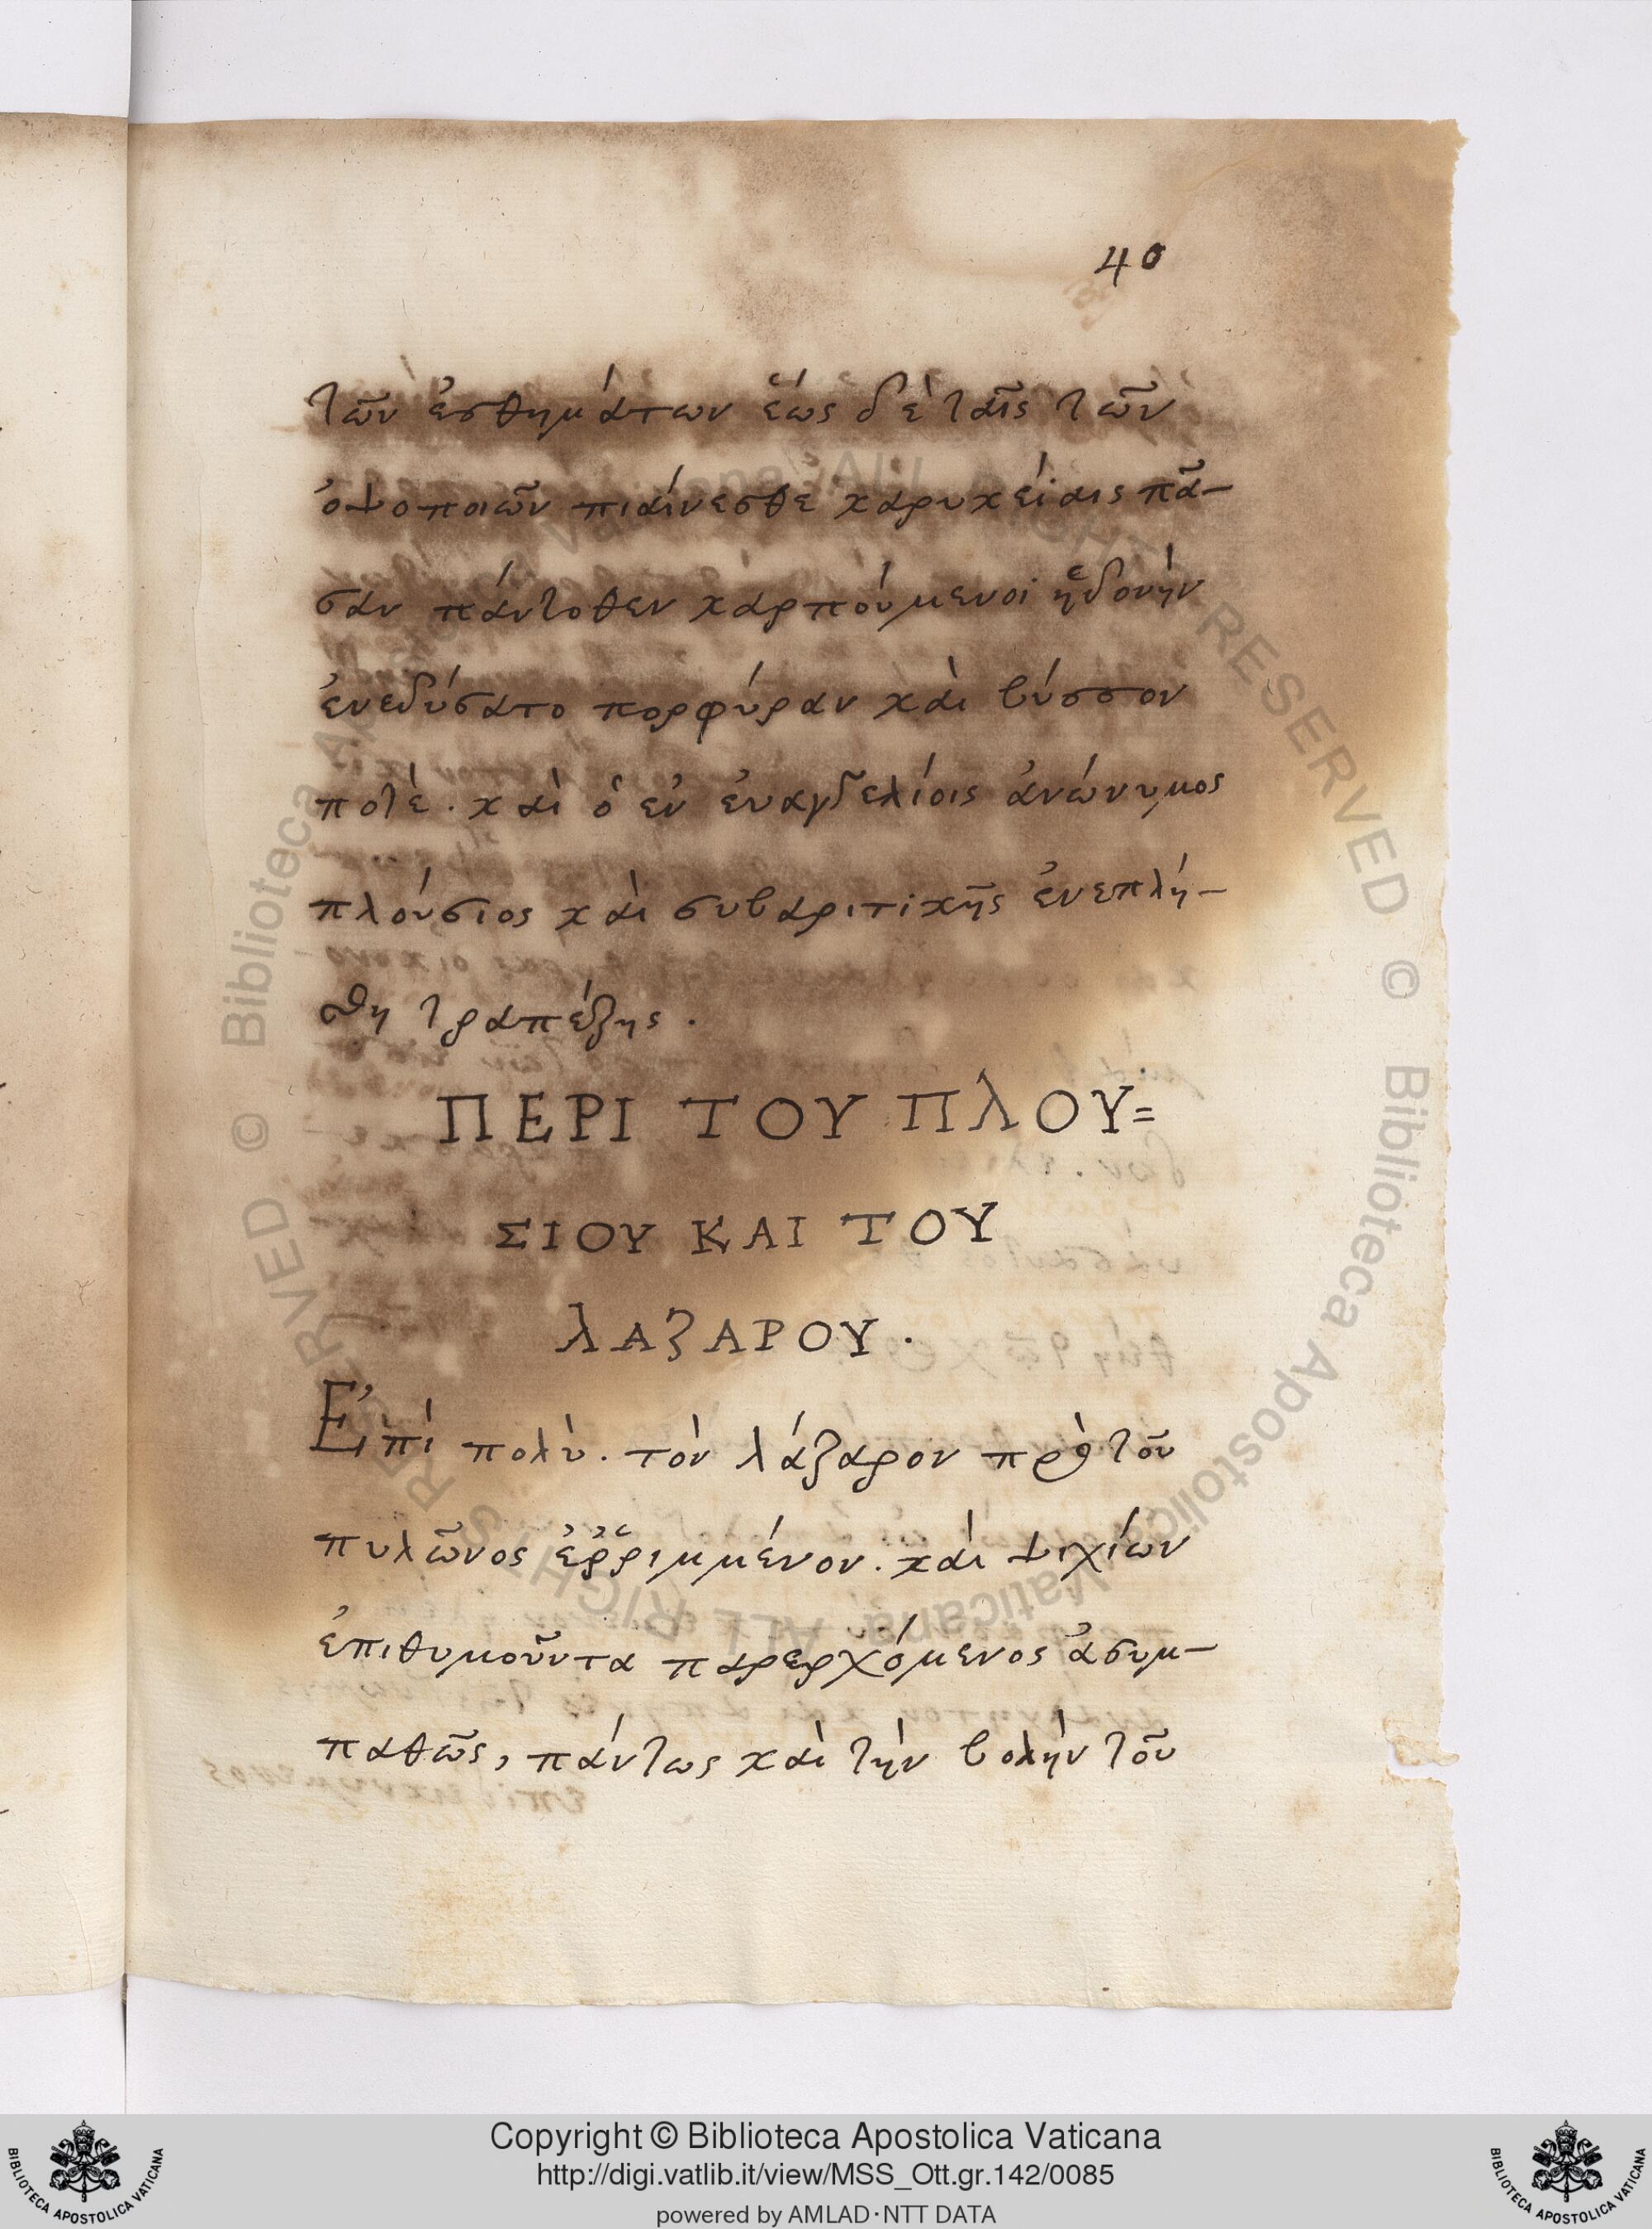 40
τῶν ἐσθημάτων ἕως δὲ ταῖς τῶν
ὀψοποιῶν πιαίνεσθε καρυκείαις πᾶ-
σαν πάντοθεν καρπούμενοι ἡδονὴν
ἐνεδύσατο πορφύραν καὶ βύσσον
ποτὲ · καὶ ὁ ἐν ἐυαγγελίοις ἀνώνυμος
πλούσιος καὶ συβαριτικῆς ἐνεπλή-
σθη τραπέζης ·
ΠΕΡΙ ΤΟΥ ΠΛΟΥ=
ΣΙΟΥ ΚΑΙ ΤΟΥ
ΛΑΖΑΡΟΥ ·
Ἐπὶ πολὺ · τὸν λάζαρον πρὸ τοῦ
πυλῶνος ἐῤῥιμμένον · καὶ ψιχίων
ἐπιθυμοῦντα παρερχόμενος ἀσυμ-
παθῶς, πάντως καὶ τὴν βολὴν τοῦ
Copyright © Biblioteca Apostolica Vaticana
http://digi.vatlib.it/view/MSS_Ott.gr.142/0085
powered by AMLAD·NTT DATA
BIBLIOTECA APOSTOLICA VATICANA
BIBLIOTECA APOSTOLICA VATICANA